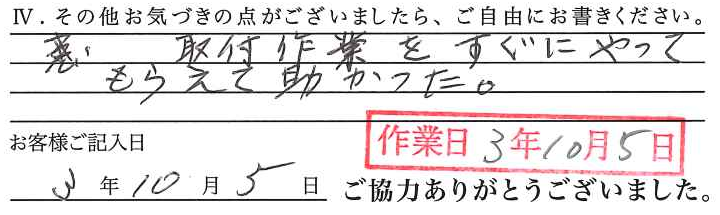 Ⅳ．その他お気づきの点がございましたら、ご自由にお書きください。
取付作業をすぐにやって
もらえて助かった。
お客様ご記入日
作業日 3年10月5日
3年10月5日
ご協力ありがとうございました。